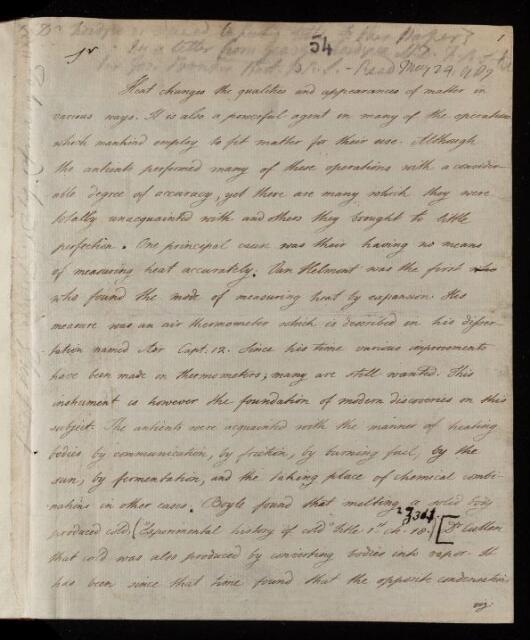 54
1
Sr
Read May 24, 1789
Heat changes the qualities and appearances of matter in
various ways. It is also a powerful agent in many of the operations
which mankind employ to fit matter for their use. Although
the antients performed many of these operations with a consider-
able degree of accuracy, yet there are many which they were
totally unacquainted with and others they brought to little
perfection. One principal cause was their having no means
of measuring heat accurately. Van Helmont was the first who
who found the mode of measuring heat by expansion. His
measure was an air thermometer which is described in his disser-
tation named Aer Capt. 12. Since his time various improvements
have been made on thermometers, many are still wanted. This
instrument is however the foundation of modern discoveries on this
subject. The antients were acquainted with the manner of heating
bodies by communication, by friction, by burning fuel, by the
sun, by fermentation, and the taking place of chemical combi-
nations in other cases. Boyle found that melting a solid body
produced cold (Experimental history of cold title 1st ch. 18.) [Dr Cullen
that cold was also produced by converting bodies into vapor. It
has been since that time found that the opposite condensation
viz.